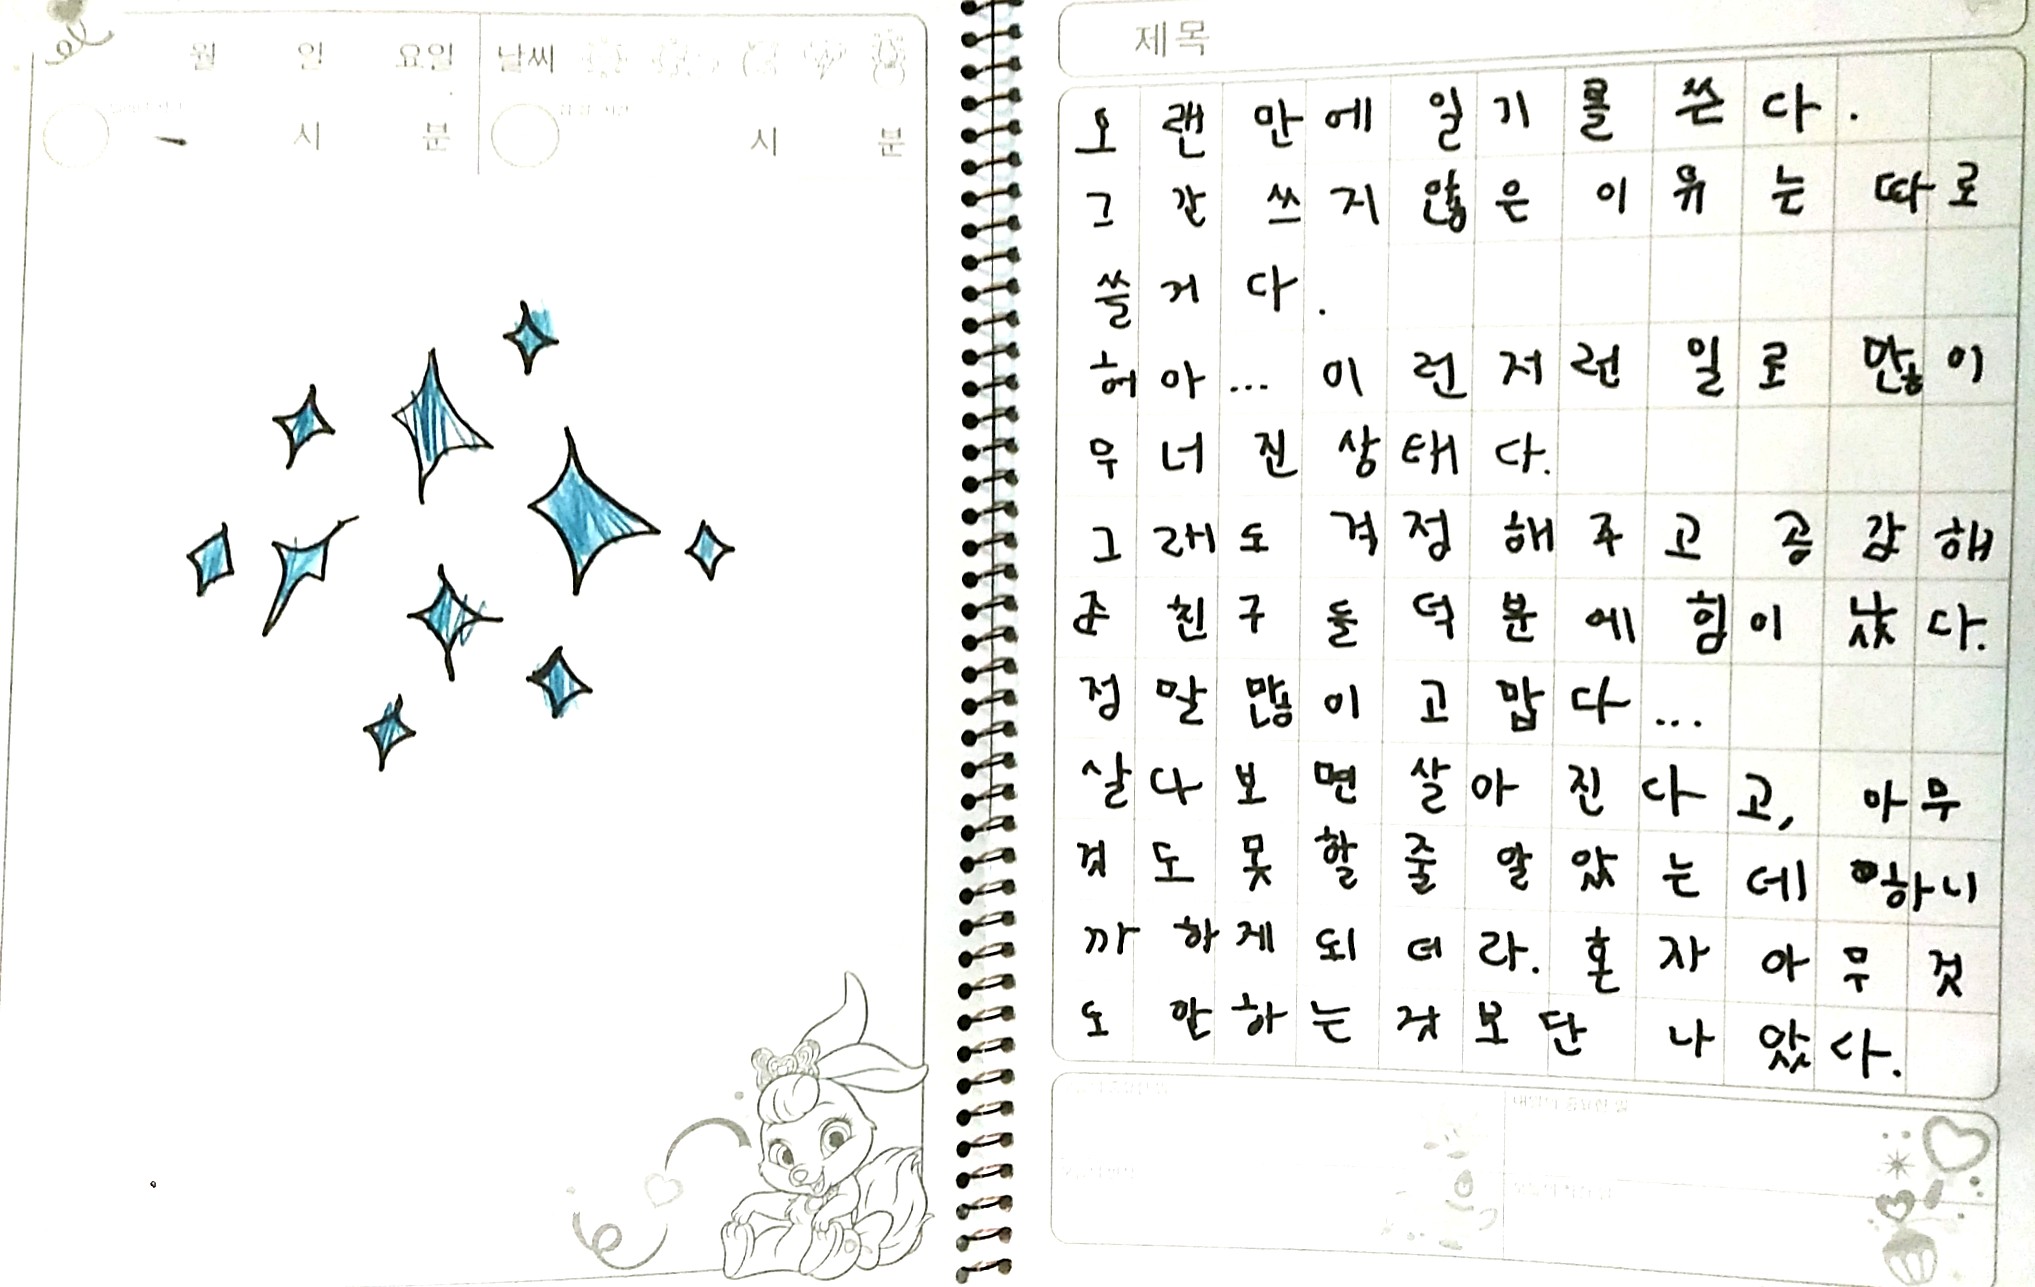 월 일 요일 날씨
시 분 시 분
제목
오랜만에 일기를 쓴다.
그간 쓰지 않은 이유는 따로
쓸거다.
허어... 이런저런 일로 많이
무너진 상태다.
그래도 걱정해주고 공감해
준 친구들 덕분에 힘이 났다.
정말 많이 고맙다...
살다보면 살아진다고, 아무
것도 못할 줄 알았는데 하니
까 하게 되더라. 혼자 아무것
도 안하는 것보단 나았다.